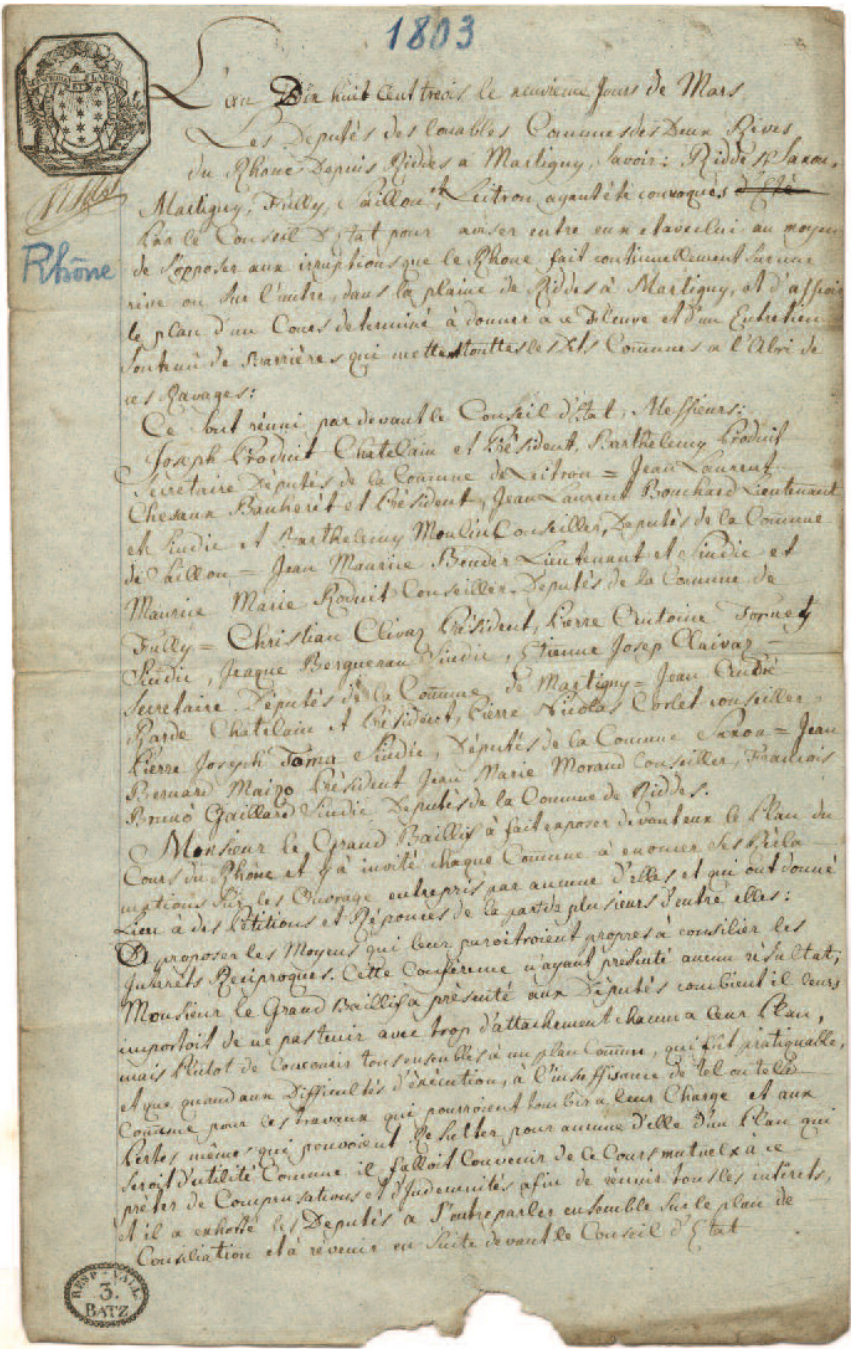 1803
L'an Dix huit Cent trois le neuvieme Jours de Mars
Les Députés des louables Communes des Deux Rives
du Rhone Depuis Riddes a Martigny, Savoir: Riddes, Saxon,
Martigny, Fully, Saillon et Leitron, ayant été convoqués
Rhône
Par le Conseil d'Etat pour aviser entre eux et avec lui au moyen
de s'opposer aux irruptions que le Rhone fait continuellement sur une
rive ou sur l'autre, dans la plaine de Riddes à Martigny, et d'assoir
le plan d'un Cours determiné à donner a ce Fleuve et d'un Entretien
Soutenû de Barrières qui mette touttes les Communes a l'Abri de
ces Ravages:
Ce but réuni par devant le Conseil d'Etat, Messieurs:
Joseph Produit Chatelain et Président, Barthelemy Produit
Secretaire Députés de la Comune de Leitron = Jean Laurent
Chesaux Banheret et Président, Jean Laurent Bouchard Lieutenant
et Sindic et Barthelemy Moulin Conseiller, Députés de la Commune
de Saillon = Jean Maurice Bender Lieutenant et Sindic et
Maurice Marie Roduit Conseiller Députés de la Comune de
Fully = Christian Clivaz Président, Pierre Antoine
Sindic, Jeaque Bergueran Sindic, Etienne Josep Claivaz
Secretaire Députés de la Comune de Martigny = Jean André
Rarde Chatelain et Président, Pierre Nicolas conseiller
Pierre Joseph Toma Sindic, Députés de la Comune Saxon = Jean
Bernard Maizo Président Jean Marie Morand Conseiller, Francois
Bruno Gaillard Sindic Députés de la Comune de Riddes.
Monsieur le Grand Baillif à fait exposer devant eux le Plan du
Cours du Rhône et à invité chaque Commune à enoncer ses Récla
mations sur les Ouvrage entrepris par aucune d'elles et qui ont donné
Lieu à des Pétitions et Réponces de la part de plusieurs d'entre elles:
De proposer les Moyens qui leur paroitroient propres à consilier les
Interrêts Reciproques. Cette Conférence n'ayant présenté aucun résultat,
Monsieur le Grand Baillif à présenté aux Députés combient il leurs
importoit de ne pas tenir avec trop d'attachement chacun a leur Plan,
mais Plutot de Concourir tous ensembles à un plan Comune, qui fut pratiquable,
et que quand aux Difficultés d'éxécution, à l'insuffisance de tel ou telle
Comune pour ces travaux qui pourroient tomber a leur Charge et aux
Pertes mêmes qui pouvoient Resulter pour aucune d'elle d'un Plan qui
seroit d'utilité Comune il falloit Convenir de ce Cours mutuel à ce
prèter de Compensations et d'Indemnités afin de réunir tous les intérets,
et il a exhorté les Députés a s'entreparler ensemble sur le plan de
Consiliation et à revenir en suite devant le Conseil d'Etat
RESP. VALL.
3.
BATZ